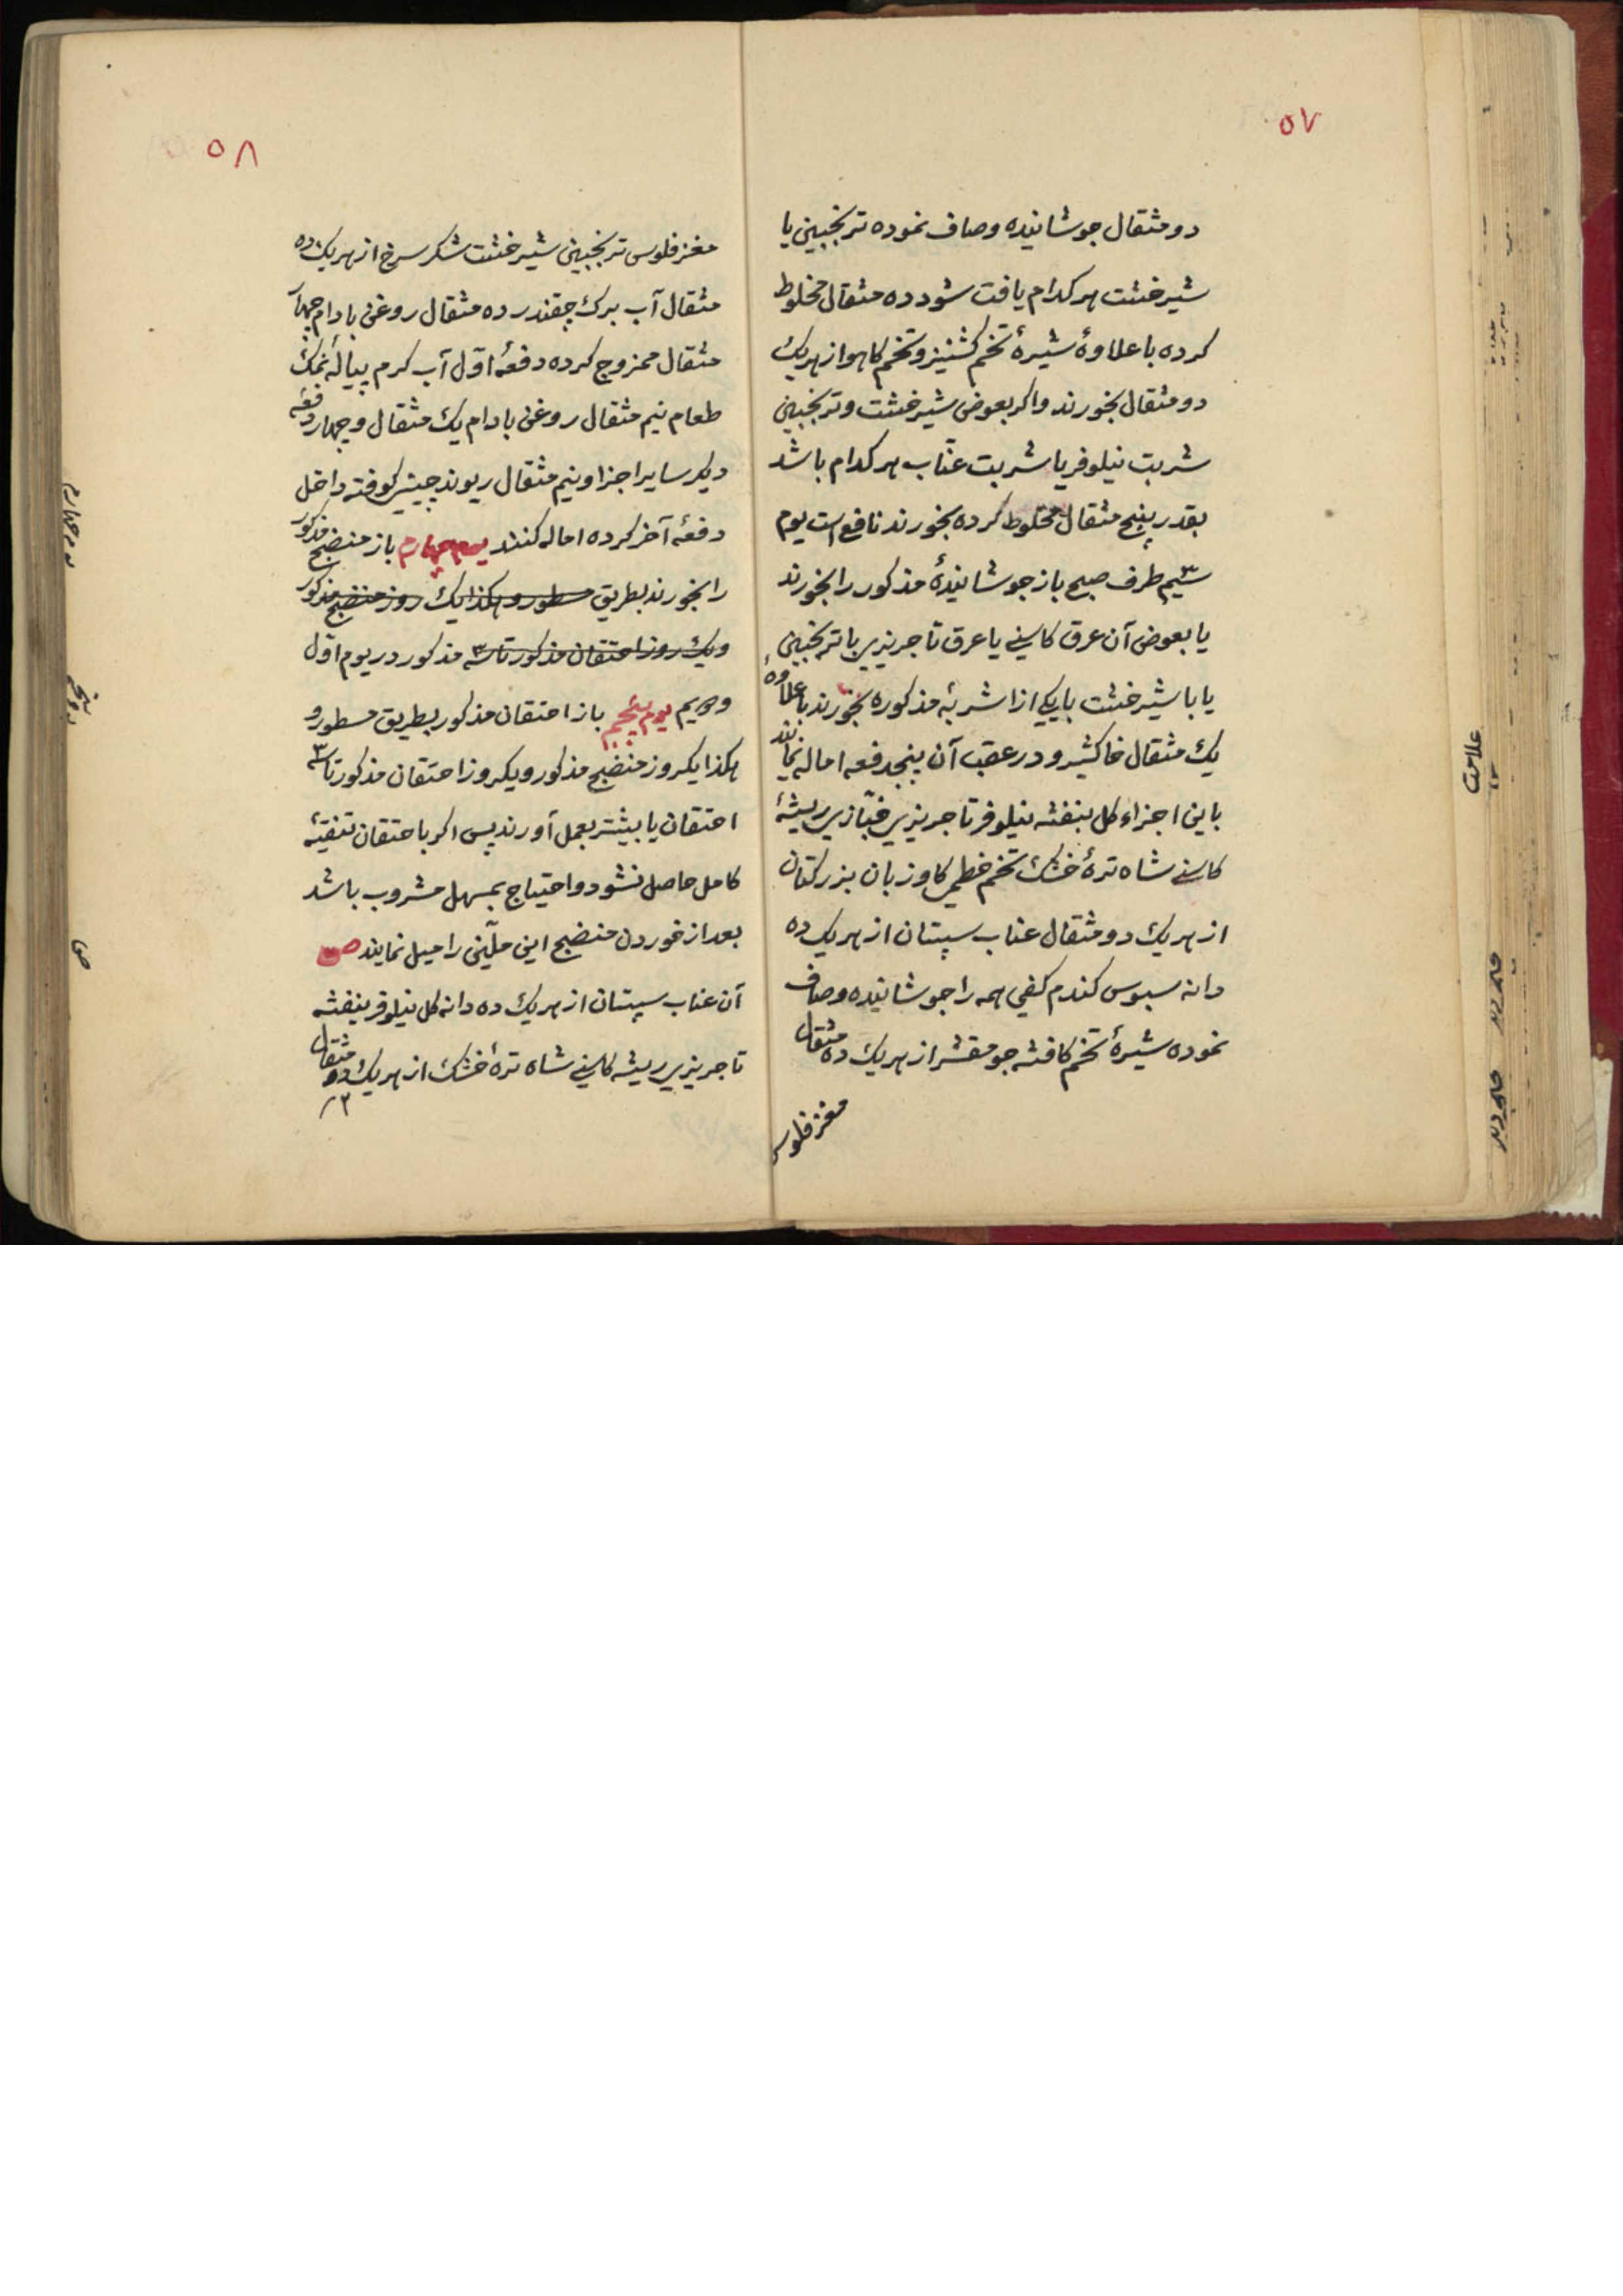 ۵۷
دو مثقال جوشانیده و صاف نموده ترنجبین یا
شیرخشت هر کدام یافت شود ده مثقال مخلوط
کرده با علاوهٔ شیرهٔ تخم کشنیز و تخم کاهو از هر یک
دو مثقال بخورند و اکر بعوض شیرخشت و ترنجبین
شربت نیلوفر یا شربت عنّاب هر کدام باشد
بقدر پنج مثقال مخلوط کرده بخورند نافع است یوم
سیم طرف صبح باز جوشانیدهٔ مذکور را بخورند
یا بعوض آن عرق کاسنی یا عرق تاجریزی با ترنجبین
یا با شیرخشت یا یکی از اشربهٔ مذکوره بخورند با علاوهٔ
یک مثقال خاکشیر و در عقب آن پنجدفعه اماله نمایند
باین اجزاء کل بنفشه نیلوفر تاجریزی خبّازی ریشهٔ
کاسنی شاه ترهٔ خشک تخم خطمی کاوزبان بزرکتان
از هر یک دو مثقال عناب سپستان از هر یک ده
دانه سبوس کندم کفی همه را جوشانیده و صاف
نموده شیرهٔ تخم کافشه جو مقشر از هر یک ده مثقال
مغز فلوس
۵۸
مغز فلوس ترنجبین شیرخشت شکر سرخ از هر یک ده
مثقال آب برک چقندر ده مثقال روغن بادام چهار
مثقال ممزوج کرده دفعهٔ اوّل آب کرم پیالهٔ نمک
طعام نیم مثقال روغن بادام یک مثقال و چهار دفعهٔ
دیکر سایر اجزا و نیم مثقال ریوند چینی کوفته داخل
دفعهٔ آخر کرده اماله کنند یوم چهارم باز منضج مذکور
را بخورند بطریق مسطور و هکذا یک روز منضج مذکور
و یک روز احتقان مذکور تا سه مذکور در یوم اوّل
و دویم یوم پنجم باز احتقان مذکور بطریق مسطور و
هکذا یکروز منضج مذکور و یکروز احتقان مذکور تا سه
احتقان یا بیشتر بعمل آورند پس اکر با احتقان تنقیهٔ
کامل حاصل نشود و احتیاج بمسهل مشروب باشد
بعد از خوردن منضج این ملیّن را میل نمایند ص
آن عناب سپستان از هر یک ده دانه کل نیلوفر بنفشه
تاجریزی ریشه کاسنی شاه ترهٔ خشک از هر یک دو مثقال
علامت